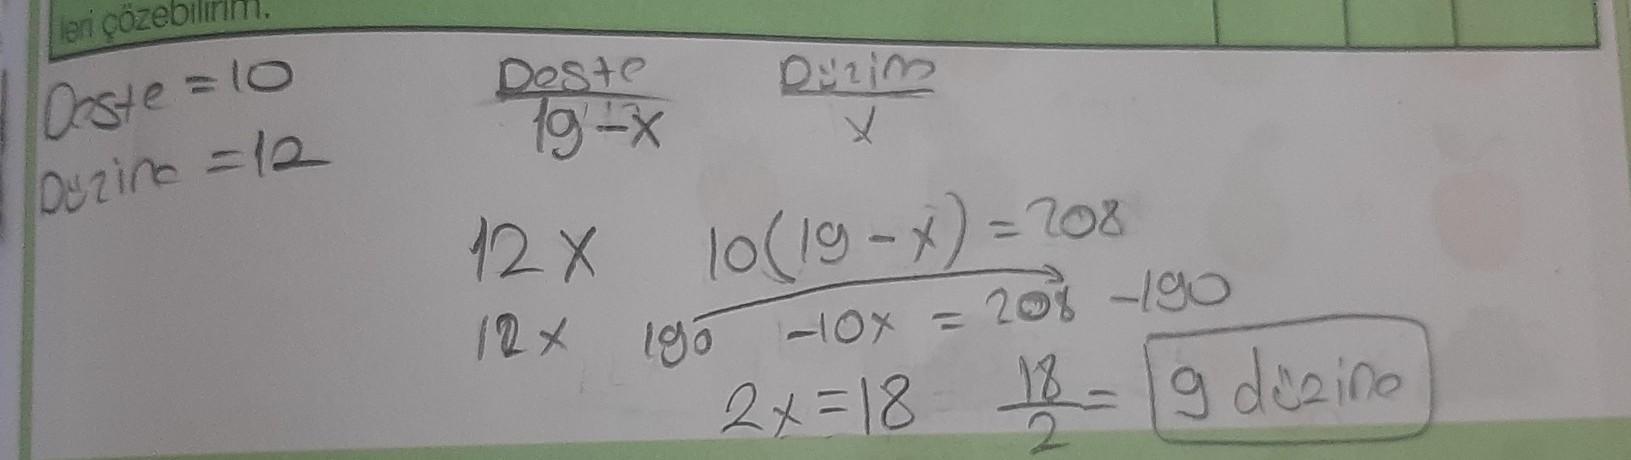 leri çözebilirim.
Deste = 10
Düzine = 12
Deste Düzin
19-x x
12x 10(19-x) = 208
12x 190 -10x = 208 -190
2x = 18 18/2 = 9 düzine